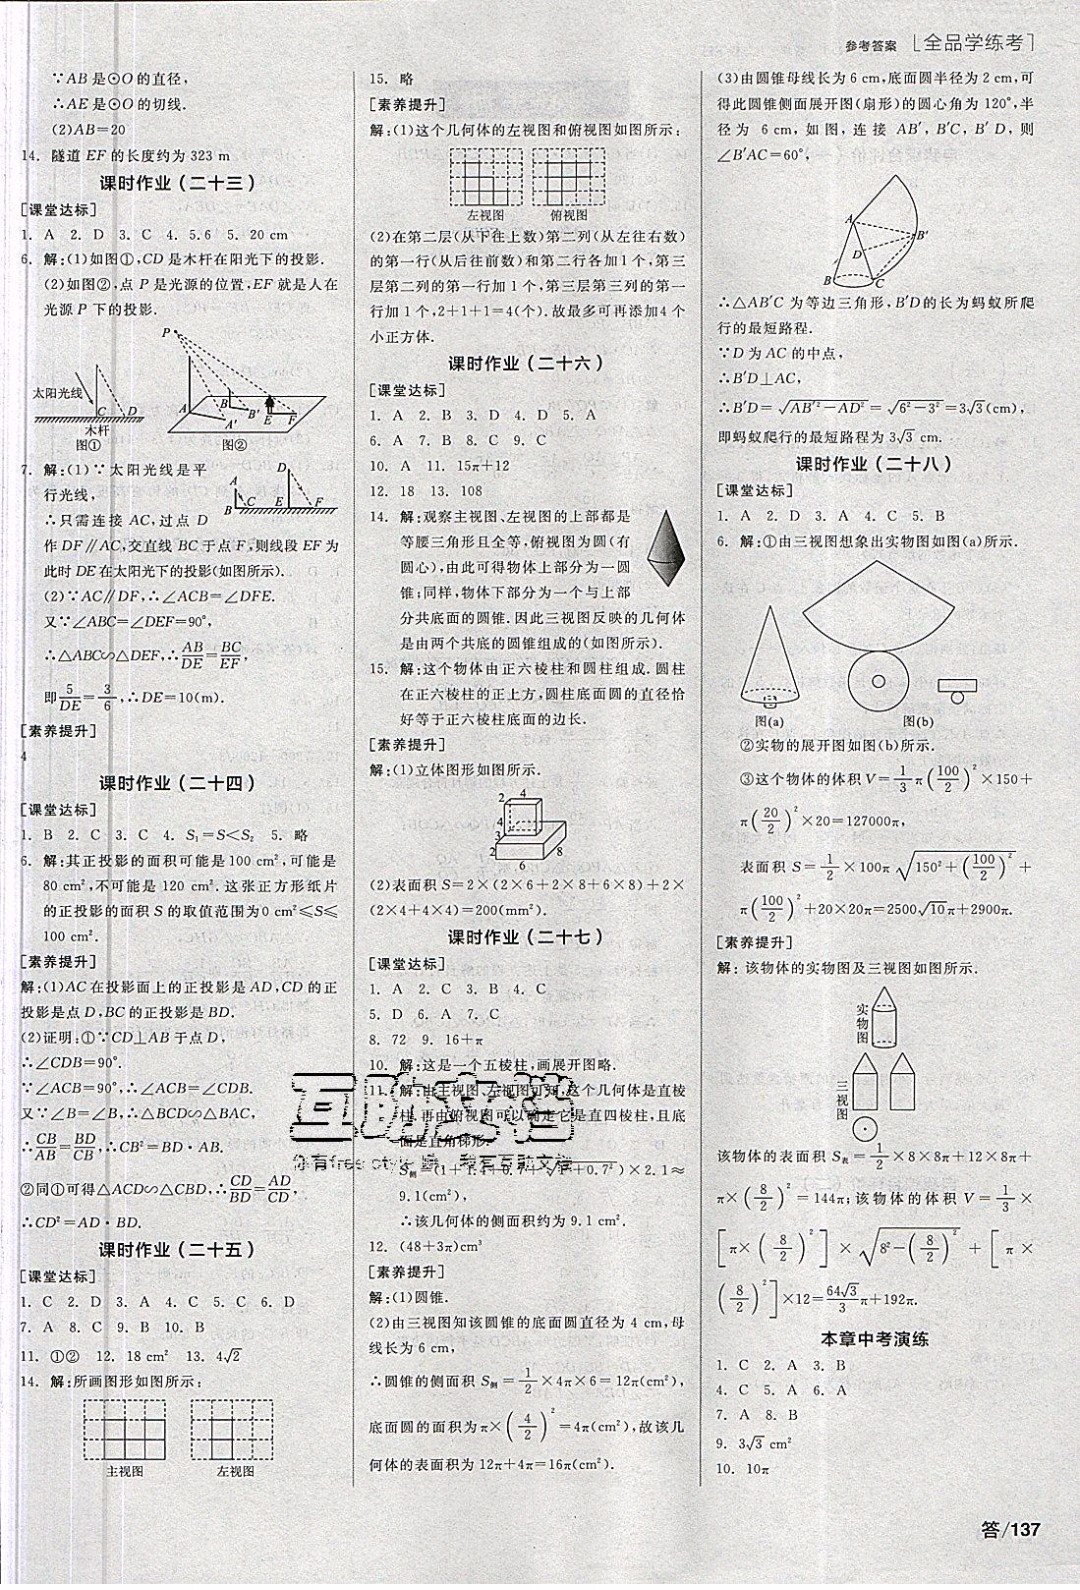 参考答案 [全品学练考]
∵AB是⊙O的直径,
∴AE是⊙O的切线.
(2)AB=20
14. 隧道EF的长度约为323 m
课时作业(二十三)
[课堂达标]
1. A 2. D 3. C 4. 5.6 5. 20 cm
6. 解:(1)如图①,CD是木杆在阳光下的投影.
(2)如图②,点P是光源的位置,EF就是人在
光源P下的投影.
P
太阳光线
C D
木杆
图①
A B B' A' E F
图②
7. 解:(1)∵太阳光线是平
行光线,
∴只需连接AC,过点D
作DF∥AC,交直线BC于点F,则线段EF为
此时DE在太阳光下的投影(如图所示).
A D
B C E F
(2)∵AC∥DF,∴∠ACB=∠DFE.
又∵∠ABC=∠DEF=90°,
∴△ABC∽△DEF,∴AB/DE=BC/EF,
即5/DE=3/6,∴DE=10(m).
[素养提升]
4
课时作业(二十四)
[课堂达标]
1. B 2. C 3. C 4. S₁=S<S₂ 5. 略
6. 解:其正投影的面积可能是100 cm²,可能是
80 cm²,不可能是120 cm². 这张正方形纸片
的正投影的面积S的取值范围为0 cm²≤S≤
100 cm².
[素养提升]
解:(1)AC在投影面上的正投影是AD,CD的正
投影是点D,BC的正投影是BD.
(2)证明:①∵CD⊥AB于点D,
∴∠CDB=90°.
∵∠ACB=90°,∴∠ACB=∠CDB.
又∵∠B=∠B,∴△BCD∽△BAC,
∴CB/AB=BD/CB,∴CB²=BD·AB.
②同①可得△ACD∽△CBD,∴CD/BD=AD/CD,
∴CD²=AD·BD.
课时作业(二十五)
[课堂达标]
1. C 2. D 3. A 4. C 5. C 6. D
7. A 8. C 9. B 10. B
11. ①② 12. 18 cm² 13. 4√2
14. 解:所画图形如图所示:
主视图 左视图
15. 略
[素养提升]
解:(1)这个几何体的左视图和俯视图如图所示:
左视图 俯视图
(2)在第二层(从下往上数)第二列(从左往右数)
的第一行(从后往前数)和第二行各加1个,第三
层第二列的第一行加1个,第三层第三列的第一
行加1个,2+1+1=4(个). 故最多可再添加4个
小正方体.
课时作业(二十六)
[课堂达标]
1. A 2. B 3. D 4. D 5. A
6. A 7. B 8. C 9. C
10. A 11. 15π+12
12. 18 13. 108
14. 解:观察主视图、左视图的上部都是
等腰三角形且全等,俯视图为圆(有
圆心),由此可得物体上部分为一圆
锥;同样,物体下部分为一个与上部
分共底面的圆锥. 因此三视图反映的几何体
是由两个共底的圆锥组成的(如图所示).
15. 解:这个物体由正六棱柱和圆柱组成. 圆柱
在正六棱柱的正上方,圆柱底面圆的直径恰
好等于正六棱柱底面的边长.
[素养提升]
解:(1)立体图形如图所示.
2 4
4
3
2
6 8
(2)表面积S=2×(2×6+2×8+6×8)+2×
(2×4+4×4)=200(mm²).
课时作业(二十七)
[课堂达标]
1. A 2. C 3. B 4. C
5. D 6. A 7. C
8. 72 9. 16+π
10. 解:这是一个五棱柱,画展开图略.
11. 解:由主视图、左视图可知,这个几何体是直棱
柱,再由俯视图可以确定它是直四棱柱,且底
面是直角梯形.
S侧=(1+1.4+0.7+√(1²+0.7²))×2.1≈
9.1(cm²),
∴该几何体的侧面积约为9.1 cm².
12. (48+3π)cm³
[素养提升]
解:(1)圆锥.
(2)由三视图知该圆锥的底面圆直径为4 cm,母
线长为6 cm,
∴圆锥的侧面积S侧=1/2×4π×6=12π(cm²),
底面圆的面积为π×(4/2)²=4π(cm²),故该几
何体的表面积为12π+4π=16π(cm²).
互助文档
你有free style,
(3)由圆锥母线长为6 cm,底面圆半径为2 cm,可
得此圆锥侧面展开图(扇形)的圆心角为120°,半
径为6 cm,如图,连接AB',B'C,B'D,则
∠B'AC=60°,
A
B'
D
B C
∴△AB'C为等边三角形,B'D的长为蚂蚁所爬
行的最短路程.
∵D为AC的中点,
∴B'D⊥AC,
∴B'D=√(AB'²-AD²)=√(6²-3²)=3√3(cm),
即蚂蚁爬行的最短路程为3√3 cm.
课时作业(二十八)
[课堂达标]
1. A 2. D 3. A 4. C 5. B
6. 解:①由三视图想象出实物图如图(a)所示.
图(a) 图(b)
②实物的展开图如图(b)所示.
③这个物体的体积V=1/3π(100/2)²×150+
π(20/2)²×20=127000π,
表面积S=1/2×100π√(150²+(100/2)²)+
π(100/2)²+20×20π=2500√10π+2900π.
[素养提升]
解:该物体的实物图及三视图如图所示.
实物图
三视图
该物体的表面积S表=1/2×8×8π+12×8π+
π×(8/2)²=144π;该物体的体积V=1/3×
[π×(8/2)²]×√(8²-(8/2)²)+[π×
(8/2)²]×12=64√3/3π+192π.
本章中考演练
1. C 2. A 3. B
4. C 5. A 6. A
7. A 8. B
9. 3√3 cm²
10. 10π
答/137